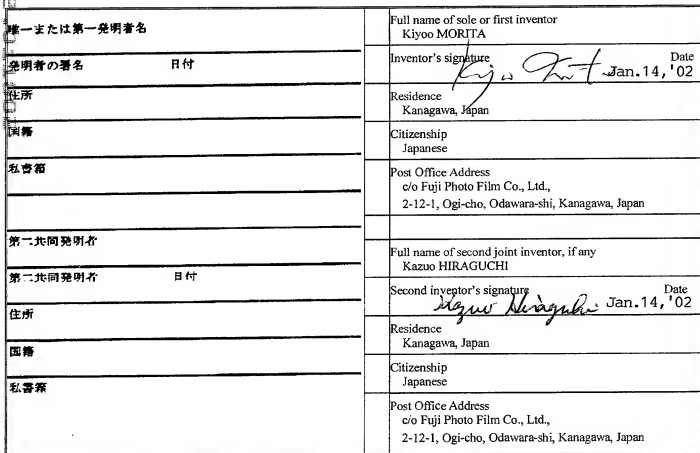 唯一または第一発明者名
Full name of sole or first inventor
Kiyoo MORITA
発明者の署名 日付
Inventor's signature Date
Jan.14,'02
住所
Residence
Kanagawa, Japan
国籍
Citizenship
Japanese
私書箱
Post Office Address
c/o Fuji Photo Film Co., Ltd.,
2-12-1, Ogi-cho, Odawara-shi, Kanagawa, Japan
第二共同発明者
Full name of second joint inventor, if any
Kazuo HIRAGUCHI
第二共同発明者 日付
Second inventor's signature Date
Kazuo Hiraguchi Jan.14,'02
住所
Residence
Kanagawa, Japan
国籍
Citizenship
Japanese
私書箱
Post Office Address
c/o Fuji Photo Film Co., Ltd.,
2-12-1, Ogi-cho, Odawara-shi, Kanagawa, Japan